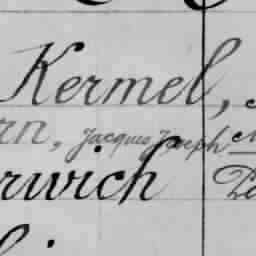 Kermel,
rn, Jacques Joseph
rwich